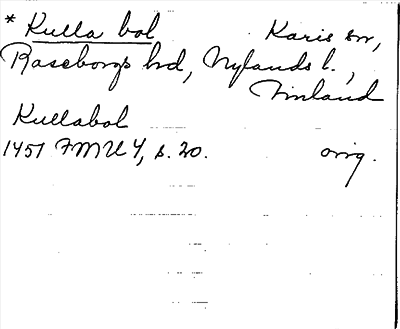 * Kulla bol Karis sn,
Raseborgs hd, Nylands l.,
Finland
Kullabol
1451 FMU 4, s. 20. orig.